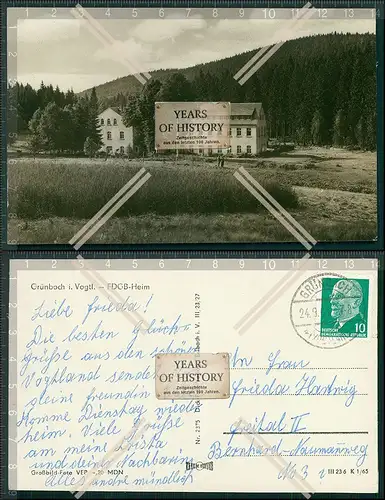 YEARS
OF HISTORY
Zeitgeschichte
aus den letzten 100 Jahren
Grünbach i. Vogtl. – FDGB-Heim
Liebe Frieda!
Die besten Glück-
grüße aus dem schönen
Vogtland sendet
deine Freundin
Komme Dienstag wieder
heim. Viele Grüße
an meine
und deine Nachbarin
Alles andre mündlich
YEARS
OF HISTORY
Zeitgeschichte
aus den letzten 100 Jahren
Großbild-Foto VEB MDN
Nr. 2275
i. V. III 23/27
24.9.
DEUTSCHE
DEMOKRATISCHE REPUBLIK
10
Frau
Frieda Hartwig
Freital II
Bernhard-Naumannweg
No 3
III 23 6 K 1/65